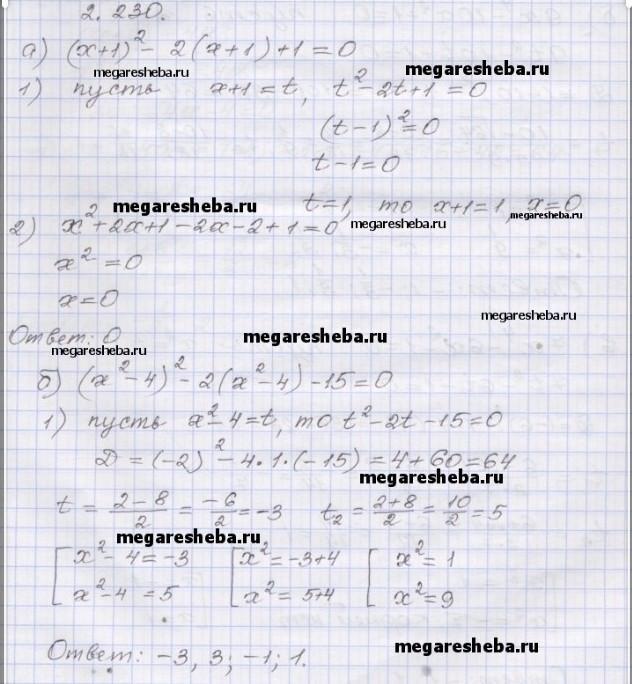 2. 230.
а) (x+1)² - 2(x+1)+1=0
megaresheba.ru megaresheba.ru
1) пусть x+1=t, t²-2t+1=0
(t-1)²=0
t-1=0
t=1, то x+1=1, x=0
megaresheba.ru megaresheba.ru megaresheba.ru
2) x²+2x+1-2x-2+1=0
x²=0
x=0
megaresheba.ru
Ответ: 0
megaresheba.ru megaresheba.ru
б) (x²-4)²-2(x²-4)-15=0
1) пусть x²-4=t, то t²-2t-15=0
D=(-2)²-4·1·(-15)=4+60=64
megaresheba.ru
t = (2-8)/2 = (-6)/2 = -3 t₂ = (2+8)/2 = 10/2 = 5
megaresheba.ru
[ x²-4=-3 [ x²=-3+4 [ x²=1
x²-4=5 x²=5+4 x²=9
Ответ: -3, 3; -1; 1.
megaresheba.ru